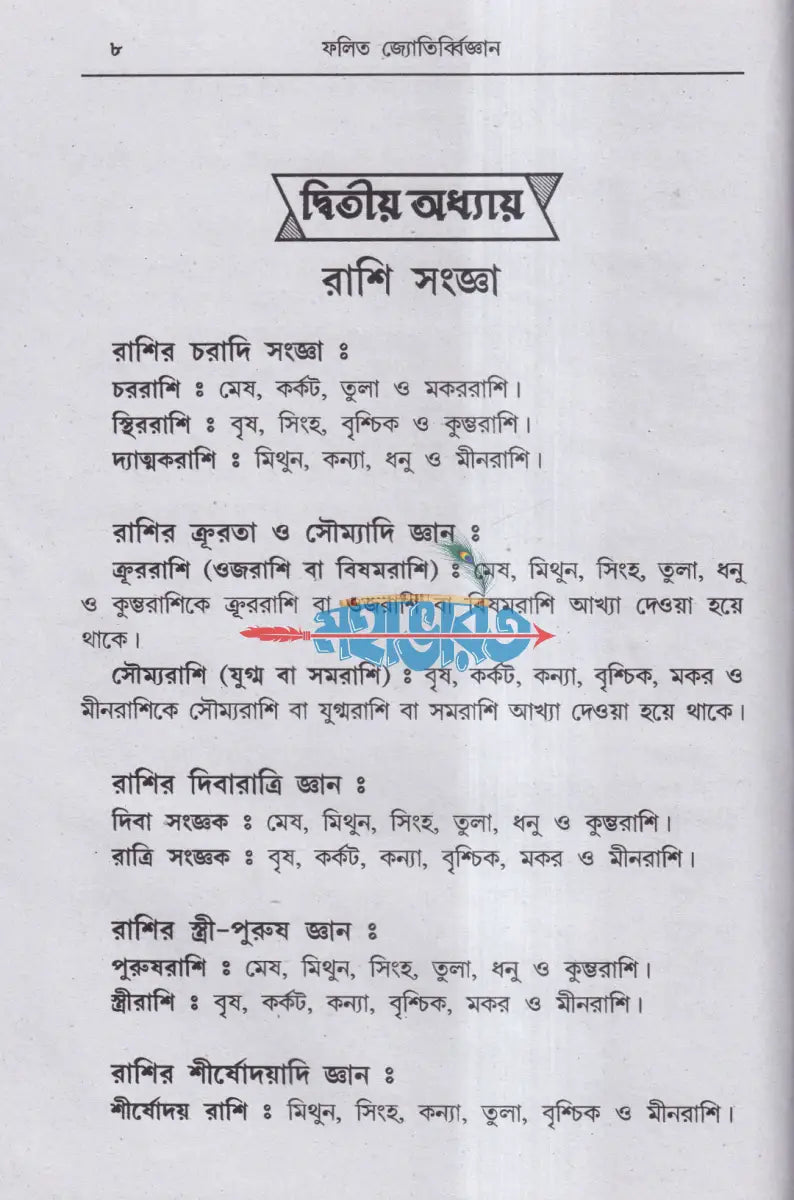 ৮
ফলিত জ্যোতির্ব্বিজ্ঞান
দ্বিতীয় অধ্যায়
রাশি সংজ্ঞা
রাশির চরাদি সংজ্ঞা ঃ
চররাশি ঃ মেষ, কর্কট, তুলা ও মকররাশি।
স্থিররাশি ঃ বৃষ, সিংহ, বৃশ্চিক ও কুম্ভরাশি।
দ্যাত্মকরাশি ঃ মিথুন, কন্যা, ধনু ও মীনরাশি।
রাশির ক্রূরতা ও সৌম্যাদি জ্ঞান ঃ
ক্রূররাশি (ওজরাশি বা বিষমরাশি) ঃ মেষ, মিথুন, সিংহ, তুলা, ধনু
ও কুম্ভরাশিকে ক্রূররাশি বা ওজরাশি বা বিষমরাশি আখ্যা দেওয়া হয়ে
মহাভারত
থাকে।
সৌম্যরাশি (যুগ্ম বা সমরাশি) ঃ বৃষ, কর্কট, কন্যা, বৃশ্চিক, মকর ও
মীনরাশিকে সৌম্যরাশি বা যুগ্মরাশি বা সমরাশি আখ্যা দেওয়া হয়ে থাকে।
রাশির দিবারাত্রি জ্ঞান ঃ
দিবা সংজ্ঞক ঃ মেষ, মিথুন, সিংহ, তুলা, ধনু ও কুম্ভরাশি।
রাত্রি সংজ্ঞক ঃ বৃষ, কর্কট, কন্যা, বৃশ্চিক, মকর ও মীনরাশি।
রাশির স্ত্রী-পুরুষ জ্ঞান ঃ
পুরুষরাশি ঃ মেষ, মিথুন, সিংহ, তুলা, ধনু ও কুম্ভরাশি।
স্ত্রীরাশি ঃ বৃষ, কর্কট, কন্যা, বৃশ্চিক, মকর ও মীনরাশি।
রাশির শীর্ষোদয়াদি জ্ঞান ঃ
শীর্ষোদয় রাশি ঃ মিথুন, সিংহ, কন্যা, তুলা, বৃশ্চিক ও মীনরাশি।